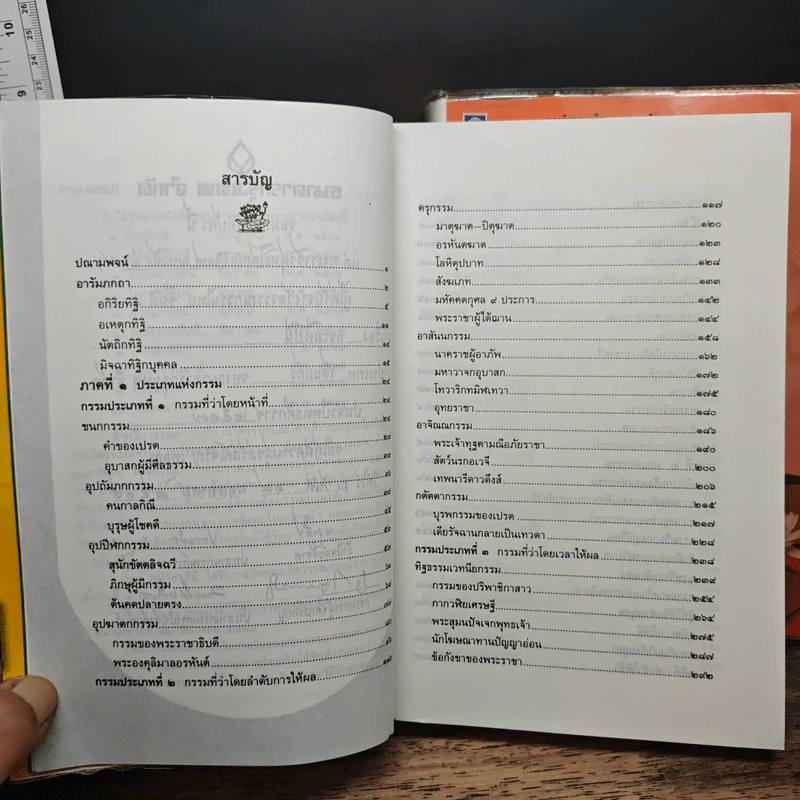 สารบัญ
ปณามพจน์ ๑
อารัมภกถา ๒
อกิริยทิฐิ ๕
อเหตุกทิฐิ ๑๑
นัตถิกทิฐิ ๑๔
มิจฉาทิฐิกบุคคล
ภาคที่ ๑ ประเภทแห่งกรรม ๒๔
กรรมประเภทที่ ๑ กรรมที่ว่าโดยหน้าที่ ๒๔
ชนกกรรม
คำของเปรต
อุบาสกผู้มีศีลธรรม
อุปถัมภกกรรม
คนกาลกิณี
บุรุษผู้โชคดี
อุปปีฬกกรรม
สุนักขัตตลิจฉวี
ภิกษุผู้มีกรรม
ต้นคดปลายตรง
อุปฆาตกกรรม
กรรมของพระราชาธิบดี
พระองคุลิมาลอรหันต์
กรรมประเภทที่ ๒ กรรมที่ว่าโดยลำดับการให้ผล
ครุกรรม ๑๑๗
มาตุฆาต—ปิตุฆาต ๑๒๐
อรหันตฆาต ๑๒๓
โลหิตุปบาท ๑๒๘
สังฆเภท ๑๓๓
มหัคคตกุศล ๙ ประการ ๑๔๒
พระราชาผู้ได้ฌาน ๑๔๔
อาสันนกรรม ๑๕๘
นาคราชผู้อาภัพ ๑๖๒
มหาวาจกอุบาสก ๑๗๒
โทวาริกทมิฬเทวา ๑๗๕
อุทยราชา ๑๘๐
อาจิณณกรรม ๑๘๖
พระเจ้าทุฐคามณีอภัยราชา ๑๙๐
สัตว์นรกอเวจี ๒๐๐
เทพนารีดาวดึงส์ ๒๐๖
กตัตตากรรม ๒๑๕
บุรพกรรมของเปรต ๒๑๗
เดียรัจฉานกลายเป็นเทวดา ๒๒๘
กรรมประเภทที่ ๓ กรรมที่ว่าโดยเวลาให้ผล ๒๓๘
ทิฐธรรมเวทนียกรรม ๒๓๙
กรรมของปริพาชิกาสาว ๒๕๔
กากวฬิยเศรษฐี ๒๖๔
พระสุมนปัจเจกพุทธเจ้า ๒๗๕
นักโฆษณาทานปัญญาอ่อน ๒๘๗
ข้อกังขาของพระราชา ๒๙๒